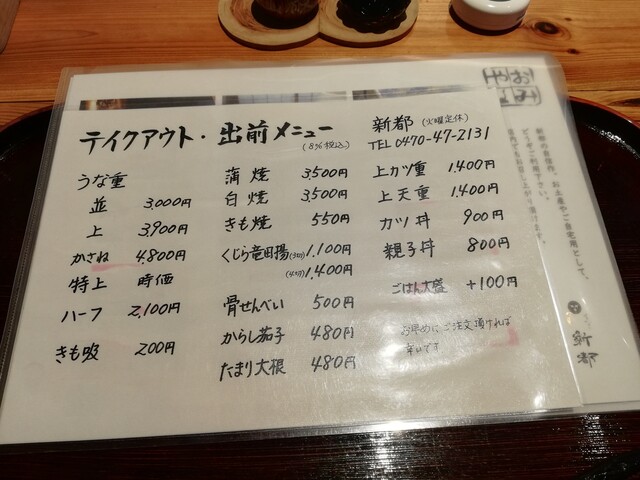 テイクアウト・出前メニュー
(8%税込)
新都 (火曜定休)
TEL 0470-47-2131
うな重
並 3,000円
上 3,900円
かさね 4,800円
特上 時価
ハーフ 2,100円
きも吸 200円
蒲焼 3,500円
白焼 3,500円
きも焼 550円
くじら竜田揚(3切) 1,100円
(4切) 1,400円
骨せんべい 500円
からし茄子 480円
たまり大根 480円
上カツ重 1,400円
上天重 1,400円
カツ丼 900円
親子丼 800円
ごはん大盛 +100円
お早めにご注文頂ければ
幸いです
おみや
新都の自信作、お土産やご自宅用として、
どうぞご利用下さい。
新都